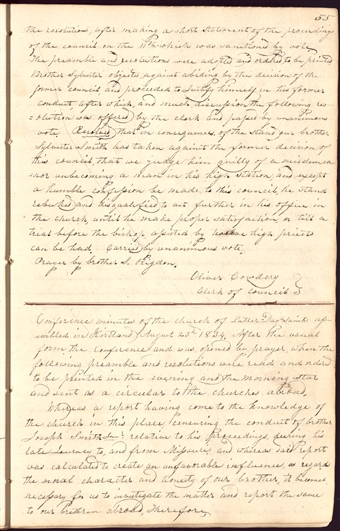 55
the resolution, after making a short statement of the proceedings
of the council on the 11th which was sanctioned by vote.
The preamble and resolutions were adopted and ordered to be printed
Brother Sylvester objected against abiding by the decision of the
former council and proceeded to justify himself in his former
conduct, after which, and much discussion the following res
olution was offered by the clerk and passed by unanimous
vote, Resolved, that in consequence of the stand our brother
Sylvester Smith has taken against the former decision of
this council, that we judge him guilty of a misdemea
nor unbecoming a man in his high station, and except
a humble confession be made, to this council, he stand
rebuked and disqualified to act further in his office in
the church, until he make proper satisfaction, or till a
trial before the bishop assisted by high priests
can be had. Carried by unanimous vote.
Prayer by brother S. Rigdon.
Oliver Cowdery
Clerk of Council
Conference minutes of the church of Latter Day Saints as
sembled in Kirtland August 23d 1834. After the usual
form, the conference was opened by prayer, when the
following preamble and resolutions were read and ordered
to be printed in the evening and the morning star
and sent as a circular to the churches abroad.
Whereas a report having come to the knowledge of
the church in this place, censuring the conduct of brother
Joseph Smith Jun. relative to his proceedings during his
late journey to, and from Missouri, and whereas said report
was calculated to create an unfavorable influence, as regards
the moral character and honesty of our brother, it becomes
necessary for us to investigate the matter and report the same
to our brethren abroad, therefore,